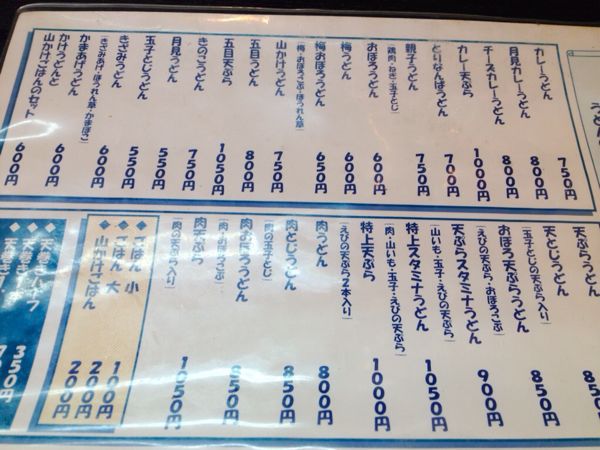 うどん
カレーうどん 750円
月見カレーうどん 800円
チーズカレーうどん 800円
カレー天ぷら 1000円
とりなんばうどん 700円
親子うどん 750円
(鶏肉・ねぎ・玉子とじ)
おぼろうどん 600円
梅うどん 600円
梅おぼろうどん 650円
(梅・おぼろこぶ・ほうれん草)
山かけうどん 750円
五目うどん 800円
五目天ぷら 1050円
きのこうどん 750円
月見うどん 550円
玉子とじうどん 550円
きざみうどん 600円
かまあげうどん 600円
(きざみあげ・ほうれん草・かまぼこ)
かけうどんと
山かけごはんのセット 600円
天ぷらうどん
天とじうどん 850円
(玉子とじの天ぷら入り)
おぼろ天ぷらうどん 850円
(えびの天ぷら・おぼろこぶ)
天ぷらスタミナうどん 900円
(山いも・玉子・えびの天ぷら)
特上スタミナうどん 1050円
(肉・山いも・玉子・えびの天ぷら)
特上天ぷら 1000円
(えびの天ぷら2本入り)
肉うどん 800円
肉とじうどん 850円
(肉の玉子とじ)
肉おぼろうどん 850円
(肉・おぼろこぶ)
肉天ぷら 1050円
(肉の天ぷら入り)
◆ごはん 小 100円
◆ごはん 大 200円
◆山かけごはん 200円
◆天巻きハーフ 350円
◆天巻き